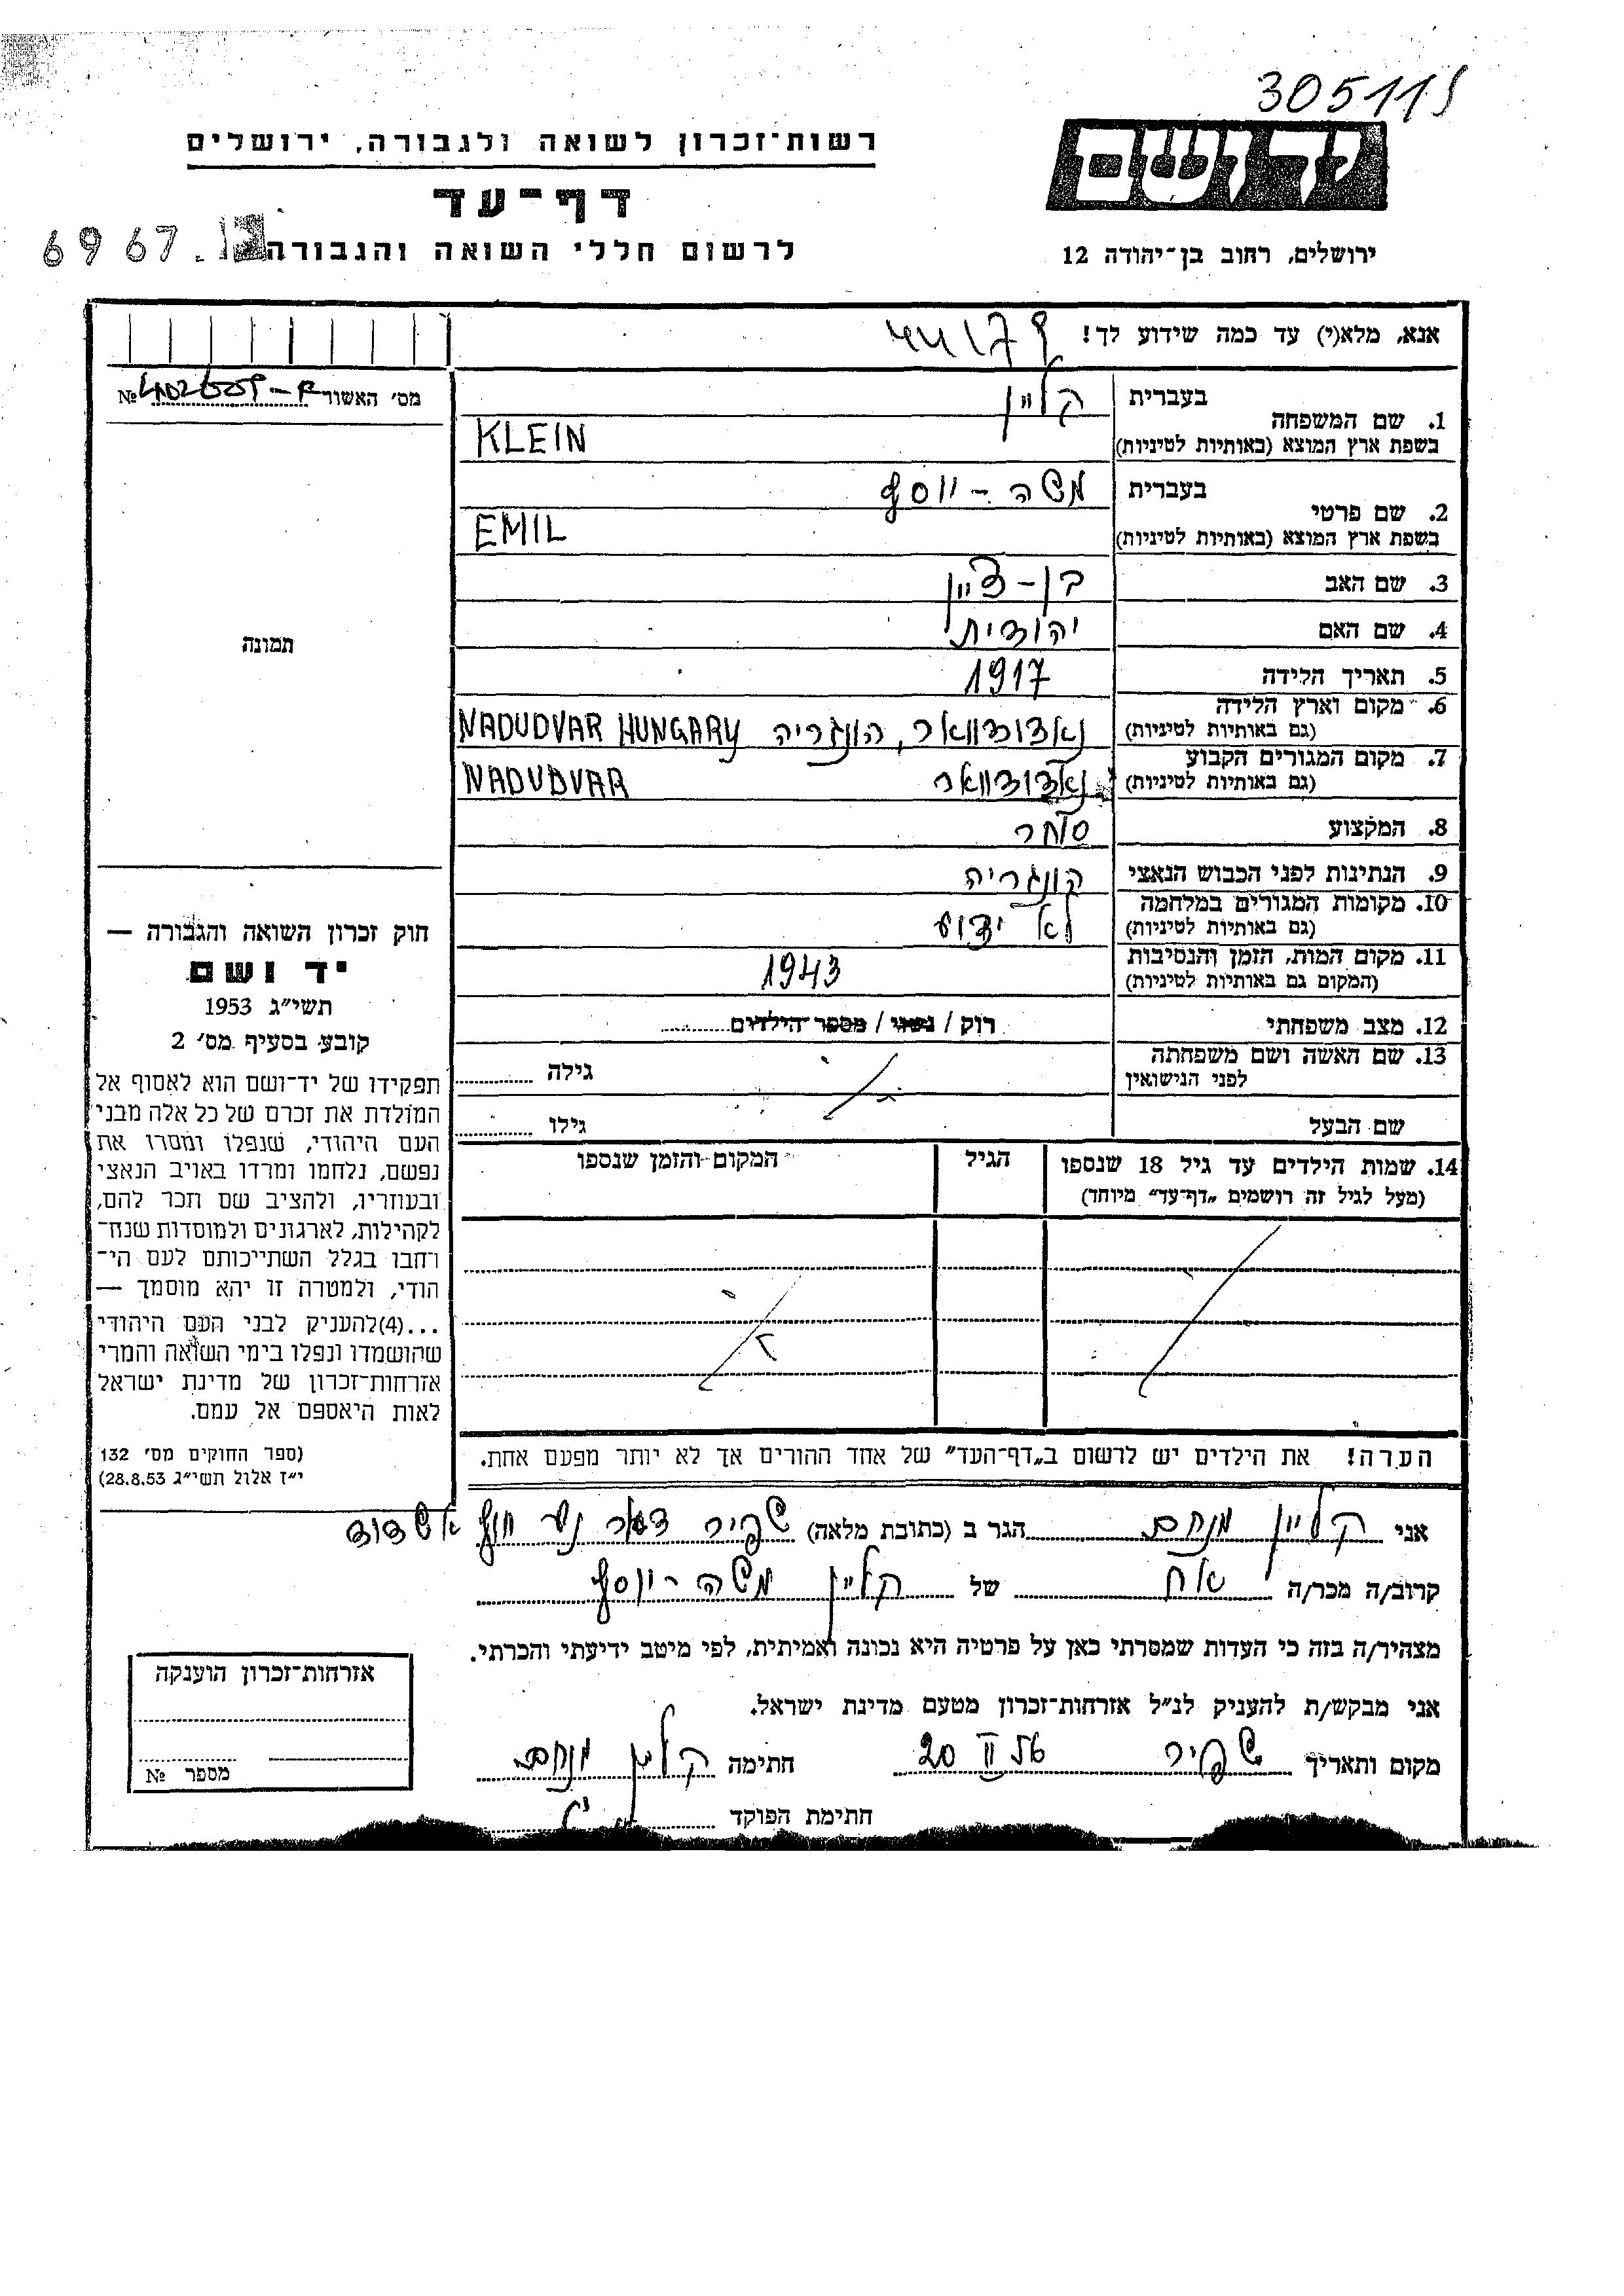 305119
יד ושם
רשות-זכרון לשואה ולגבורה, ירושלים
דף-עד
לרשום חללי השואה והגבורה
6967
ירושלים, רחוב בן-יהודה 12
אנא, מלא(י) עד כמה שידוע לך!
מס׳ האשור №
1. שם המשפחה
בעברית קליין
בשפת ארץ המוצא (באותיות לטיניות) KLEIN
2. שם פרטי
בעברית משה - יוסף
בשפת ארץ המוצא (באותיות לטיניות) EMIL
3. שם האב בן-ציון
4. שם האם יהודית
5. תאריך הלידה 1917
6. מקום וארץ הלידה
(גם באותיות לטיניות) נאדודוואר, הונגריה NADUDVAR HUNGARY
7. מקום המגורים הקבוע
(גם באותיות לטיניות) נאדודוואר NADUDVAR
8. המקצוע סוחר
9. הנתינות לפני הכבוש הנאצי הונגריה
10. מקומות המגורים במלחמה
(גם באותיות לטיניות) לא ידוע
11. מקום המות, הזמן והנסיבות
(המקום גם באותיות לטיניות) 1943
12. מצב משפחתי רוק / נשוי / מספר הילדים
13. שם האשה ושם משפחתה
לפני הנישואין גילה
שם הבעל גילו
14. שמות הילדים עד גיל 18 שנספו
(מעל לגיל זה רושמים „דף-עד״ מיוחד)
הגיל
המקום והזמן שנספו
הערה! את הילדים יש לרשום ב„דף-העד״ של אחד ההורים אך לא יותר מפעם אחת.
תמונה
חוק זכרון השואה והגבורה —
יד ושם
תשי״ג 1953
קובע בסעיף מס׳ 2
תפקידו של יד-ושם הוא לאסוף אל
המולדת את זכרם של כל אלה מבני
העם היהודי, שנפלו ומסרו את
נפשם, נלחמו ומרדו באויב הנאצי
ובעוזריו, ולהציב שם וזכר להם,
לקהילות, לארגונים ולמוסדות שנח-
רבו בגלל השתייכותם לעם הי-
הודי, ולמטרה זו יהא מוסמך —
...(4)להעניק לבני העם היהודי
שהושמדו ונפלו בימי השואה והמרי
אזרחות-זכרון של מדינת ישראל
לאות היאספם אל עמם.
(ספר החוקים מס׳ 132
י״ז אלול תשי״ג 28.8.53)
אני קליין מנחם הגר ב (כתובת מלאה) שפיר דאר נע חוף אשדוד
קרוב/ה מכר/ה אח של קליין משה - יוסף
מצהיר/ה בזה כי העדות שמסרתי כאן על פרטיה היא נכונה ואמיתית, לפי מיטב ידיעתי והכרתי.
אני מבקש/ת להעניק לנ״ל אזרחות-זכרון מטעם מדינת ישראל.
מקום ותאריך שפיר 20 II חתימה קליין מנחם
חתימת הפוקד
אזרחות-זכרון הוענקה
מספר №